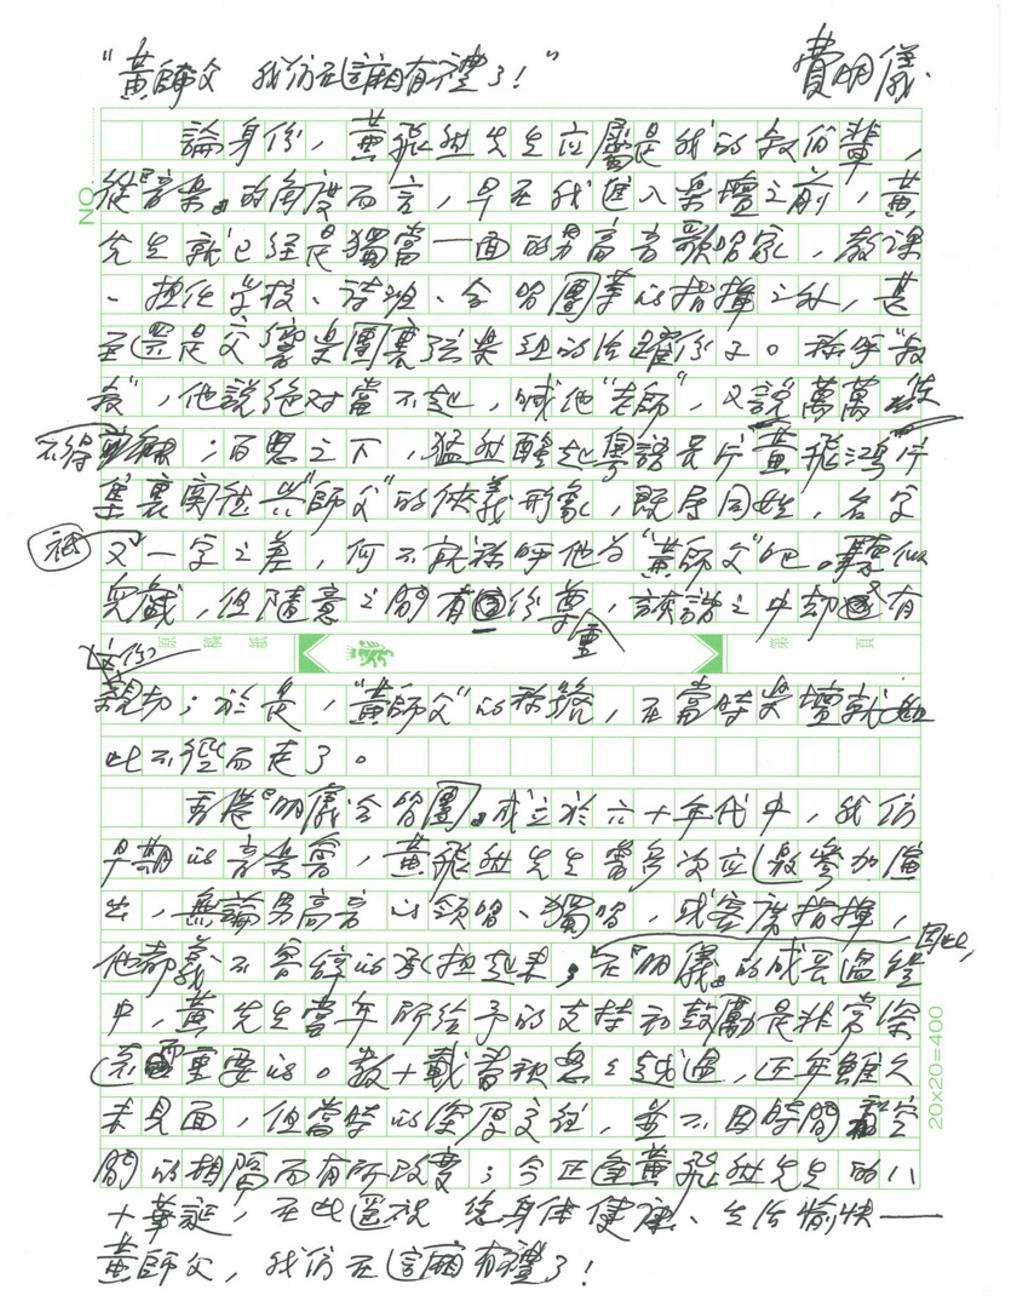 “黃師父 我們在這廂有禮了！” 費明儀
論身份，黃飛然先生应屬是我的叔伯輩，
從『音樂』的角度而言，早在我進入樂壇之前，黃
先生就已經是獨當一面的男高音歌唱家，教課
、担任学校、诗班、合唱團等的指揮之外，甚
至還是交響樂團裏弦樂組的活躍份子。称呼“叔
叔”，他說絕对當不起，喊他“老師”，又說萬萬使
不得；百思之下，猛然醒起粵語長片黃飛鴻片
集裏實德共“師父”的俠義形象，既是同姓，名字
祇又一字之差，何不就称呼他为“黃師父”吧。聽似
兒戲，但隨意之間有份尊重，詼諧之中却有
這份
親切；於是，“黃師父”的称號，在當時樂壇就
此不徑而走了。
香港『明儀合唱團』成立於六十年代中，我们
早期的音樂會，黃飛然先生曾多次应邀參加演
出，無論男高音的領唱、獨唱，或客席指揮，
他都義不容辭的承担起來，因此，在『明儀』的成長過程
中，黃先生當年所给予的支持和鼓勵是非常深
遠重要的。数十載春秋忽忽越過，近年雖久
未見面，但當時的深厚交往，並不因時間和空
間的相隔而有所改變；今正逢黃飛然先生的八
十華誕，在此遥祝 您身体健康、生活愉快——
黃師父，我们在這廂有禮了！
NO.
原稿紙
第 頁
20x20=400